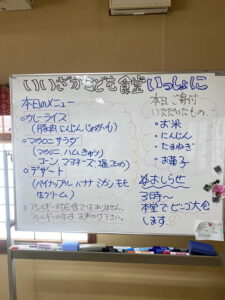 いいざかこども食堂いっしょに
本日のメニュー
○カレーライス
(豚肉 にんじん じゃがいも)
○マカロニサラダ
(マカロニ ハム きゅうり
コーン マヨネーズ 塩
○デザート
(パイナップル バナナ ミカン モモ
生クリーム)
※アレルギー対応食ではありません。
アレルギーの方はお声かけ下さい。
本日ご寄付
いただいたもの
・お米
・にんじん
・たまねぎ
・お菓子
おしらせ
3時〜
本堂でビンゴ大会
します